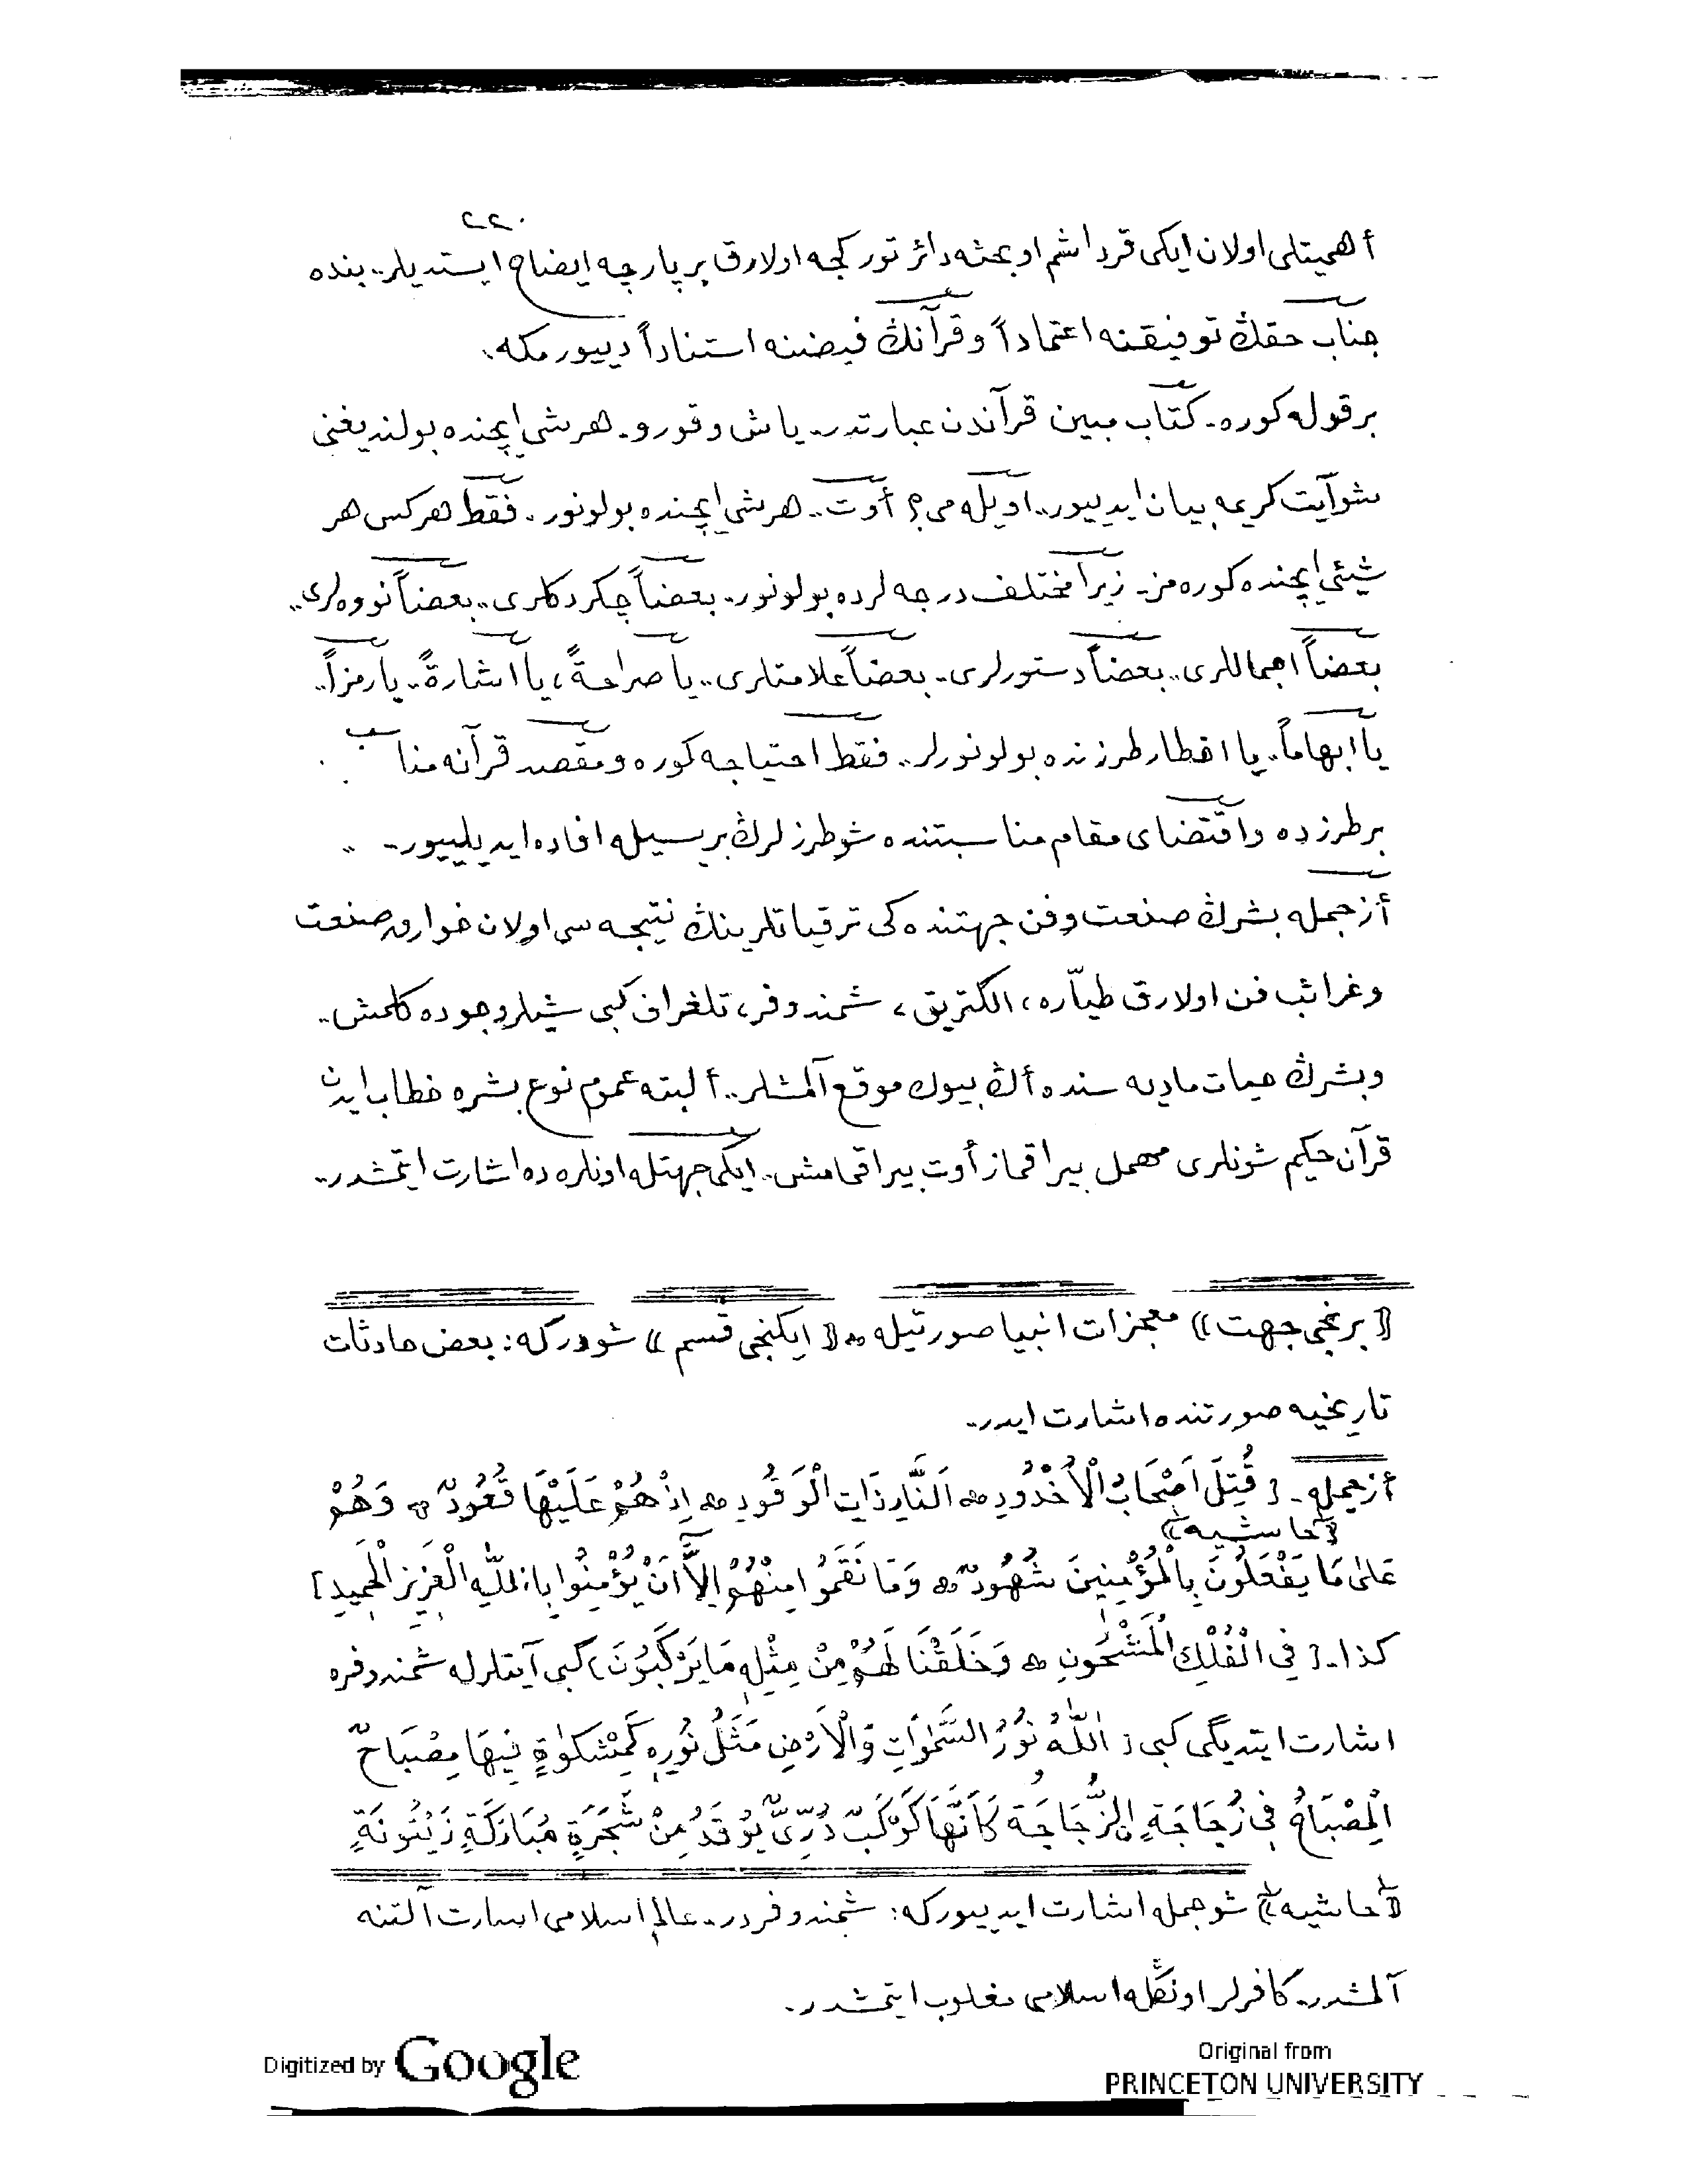 ٢٢٠
أهميتلى اولان ايكى قرداشم او بحثه دائر توركجه اولارق بر پارچه ايضاح ايستديلر.. بنده
جناب حقڭ توفيقنه اعتماداً و قرآنڭ فيضنه استناداً ديييورمكه.
بر قوله كوره.. كتاب مبين قرآندن عبارتدر.. ياش و قورو.. هر شى ايچنده بولنديغنى
شو آيت كريمه بيان ايدييور.. اويله مى؟ أوت.. هر شى ايچنده بولونور. فقط هركس هر
شيئى ايچنده كوره مز.. زيرا مختلف درجه لرده بولونور.. بعضاً چكردكلرى.. بعضاً نووه لرى..
بعضاً اجماللرى.. بعضاً دستورلرى.. بعضاً علامتلرى.. يا صراحةً، يا اشارةً.. يا رمزاً..
يا ابهاماً.. يا اخطار طرزنده بولونورلر.. فقط احتياجه كوره و مقصد قرآنه مناسب
بر طرزده و اقتضاى مقام مناسبتنده شو طرزلرڭ بريسيله افاده ايديلييور..
أز جمله بشرڭ صنعت و فن جهتنده كى ترقياتلرينڭ نتيجه سى اولان خوارق صنعت
و غرائب فن اولارق طيّاره، الكتريق، شمندوفر، تلغراف كبى شيلر وجوده كلمش..
و بشرڭ حيات ماديه سنده أڭ بيوك موقع آلمشلر.. ألبته عموم نوع بشره خطاب ايدن
قرآن حكيم شونلرى مهمل بيراقماز أوت بيراقمامش.. ايكى جهتله اونلره ده اشارت ايتمشدر..
((برنجى جهت)) معجزات انبيا صورتيله ((ايكنجى قسم)) شودركه: بعض حادثات
تاريخيه صورتنده اشارت ايدر..
أز جمله.. [قُتِلَ اَصْحَابُ الْاُخْدُودِ اَلنَّارِ ذَاتِ الْوَقُودِ اِذْ هُمْ عَلَيْهَا قُعُودٌ وَهُمْ
((حاشيه))
عَلٰى مَا يَفْعَلُونَ بِالْمُؤْمِنِينَ شُهُودٌ وَمَا نَقَمُوا مِنْهُمْ اِلَّا اَنْ يُؤْمِنُوا بِاللّٰهِ الْعَزِيزِ الْحَمِيدِ]
كذا.. [فِى الْفُلْكِ الْمَشْحُونِ وَخَلَقْنَا لَهُمْ مِنْ مِثْلِهِ مَا يَرْكَبُونَ] كبى آيتلرله شمندوفره
اشارت ايتديگى كبى [اَللّٰهُ نُورُ السَّمٰوَاتِ وَالْاَرْضِ مَثَلُ نُورِهِ كَمِشْكٰوةٍ فِيهَا مِصْبَاحٌ
اَلْمِصْبَاحُ فِى زُجَاجَةٍ اَلزُّجَاجَةُ كَاَنَّهَا كَوْكَبٌ دُرِّىٌّ يُوقَدُ مِنْ شَجَرَةٍ مُبَارَكَةٍ زَيْتُونَةٍ
((حاشيه)) شو جمله اشارت ايدييوركه: شمندوفردر.. عالم اسلامى اسارت آلتنه
آلمشدر.. كافرلر اونڭله اسلامى مغلوب ايتمشدر..
Digitized by Google
Original from
PRINCETON UNIVERSITY